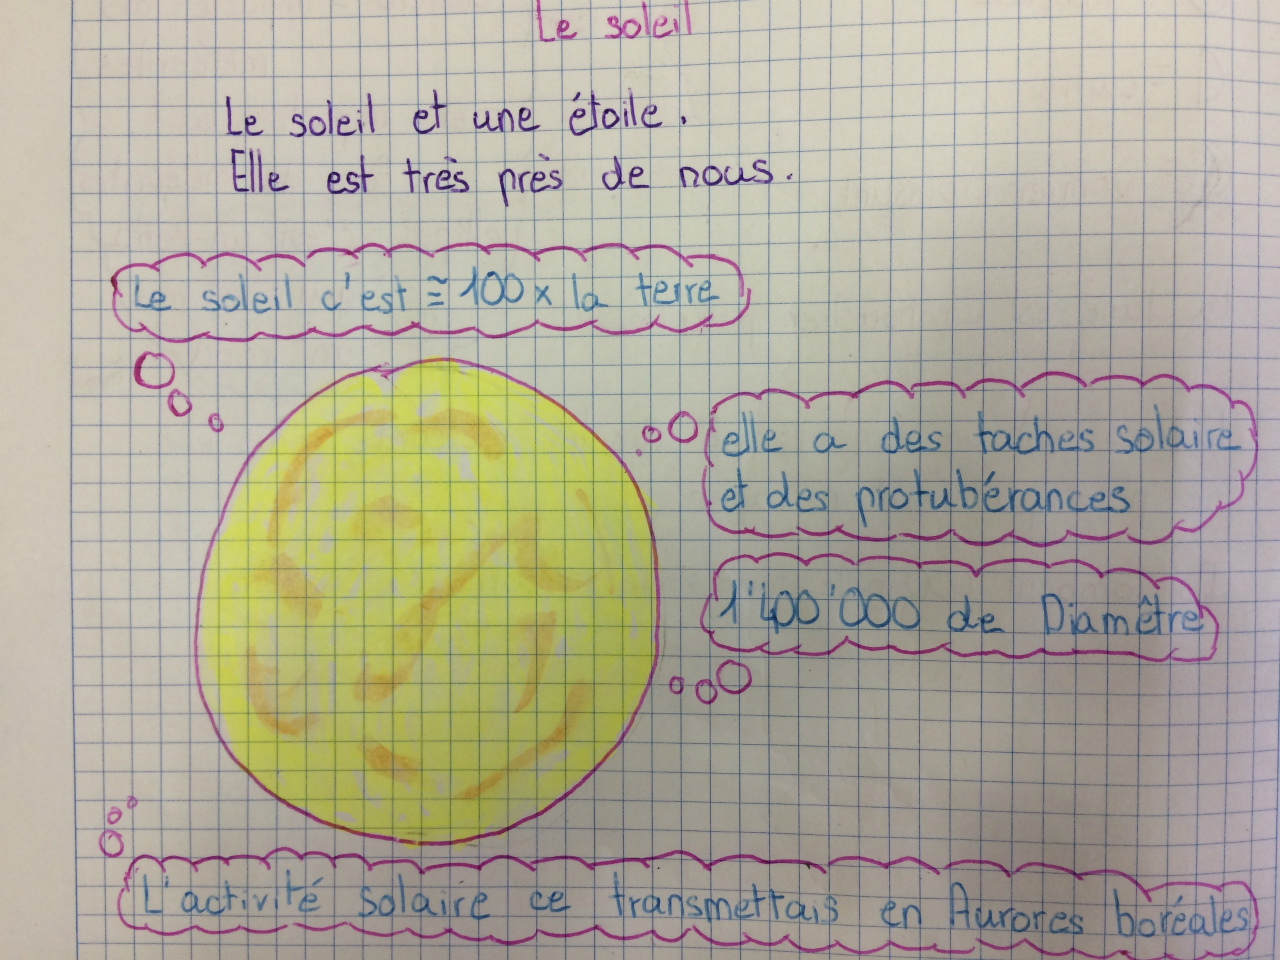 Le soleil
Le soleil et une étoile.
Elle est très près de nous.
Le soleil c'est ≅ 100x la terre
elle a des taches solaire
et des protubérances
1'400'000 de Diamêtre
L'activité solaire ce transmettais en Aurores boréales